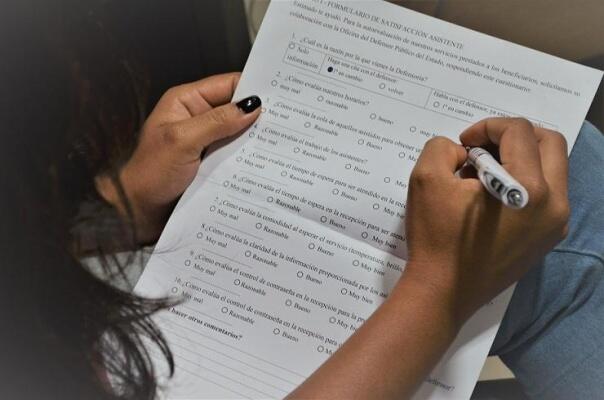 FORMULARIO DE SATISFACCIÓN ASISTENTE
Estimado te ayudo, Para la autoevaluación de nuestros servicios prestados a los beneficiarios, solicitamos su
colaboración con la Oficina del Defensor Público del Estado, respondiendo este cuestionario:
1. ¿Cuál es la razón por la que vienes la Defensoría?
Solo información
Haga una cita con el defensor:
1º en cambio volver
Habla con el defensor, ya
1º en cambio
2. ¿Cómo evalúa nuestros horarios?
muy mal razonable bueno muy
3. ¿Cómo evalúa la cola de aquellos asistidos para obtener
Muy mal Razonable Bueno Muy
4. ¿Cómo evalúa el trabajo de los asistentes?
Muy mal Razonable Bueno
5. ¿Cómo evalúa el tiempo de espera para ser atendido en la
Muy mal Razonable Bueno Muy bien
6. ¿Cómo evalúa el tiempo de espera en la recepción para ser
Muy mal Razonable Bueno Muy bien
7. ¿Cómo evalúa la comodidad al esperar el servicio (temperatura,
Muy mal Razonable Bueno Muy bien
8. ¿Cómo evalúa la claridad de la información proporcionada por los
Muy mal Razonable Bueno Muy bien
9. ¿Cómo evalúa el control de contraseña en la recepción para la
Muy mal Razonable Bueno Muy bien
10. ¿Cómo evalúa el control de contraseña en la recepción para
Muy mal Razonable Bueno
hacer otros comentarios?